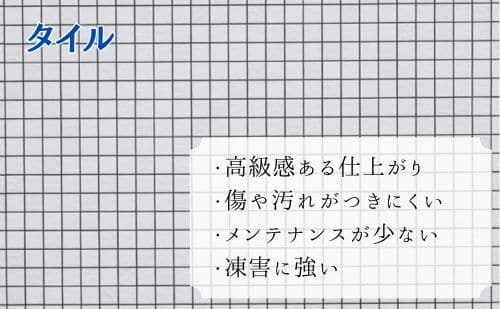 タイル
・高級感ある仕上がり
・傷や汚れがつきにくい
・メンテナンスが少ない
・凍害に強い